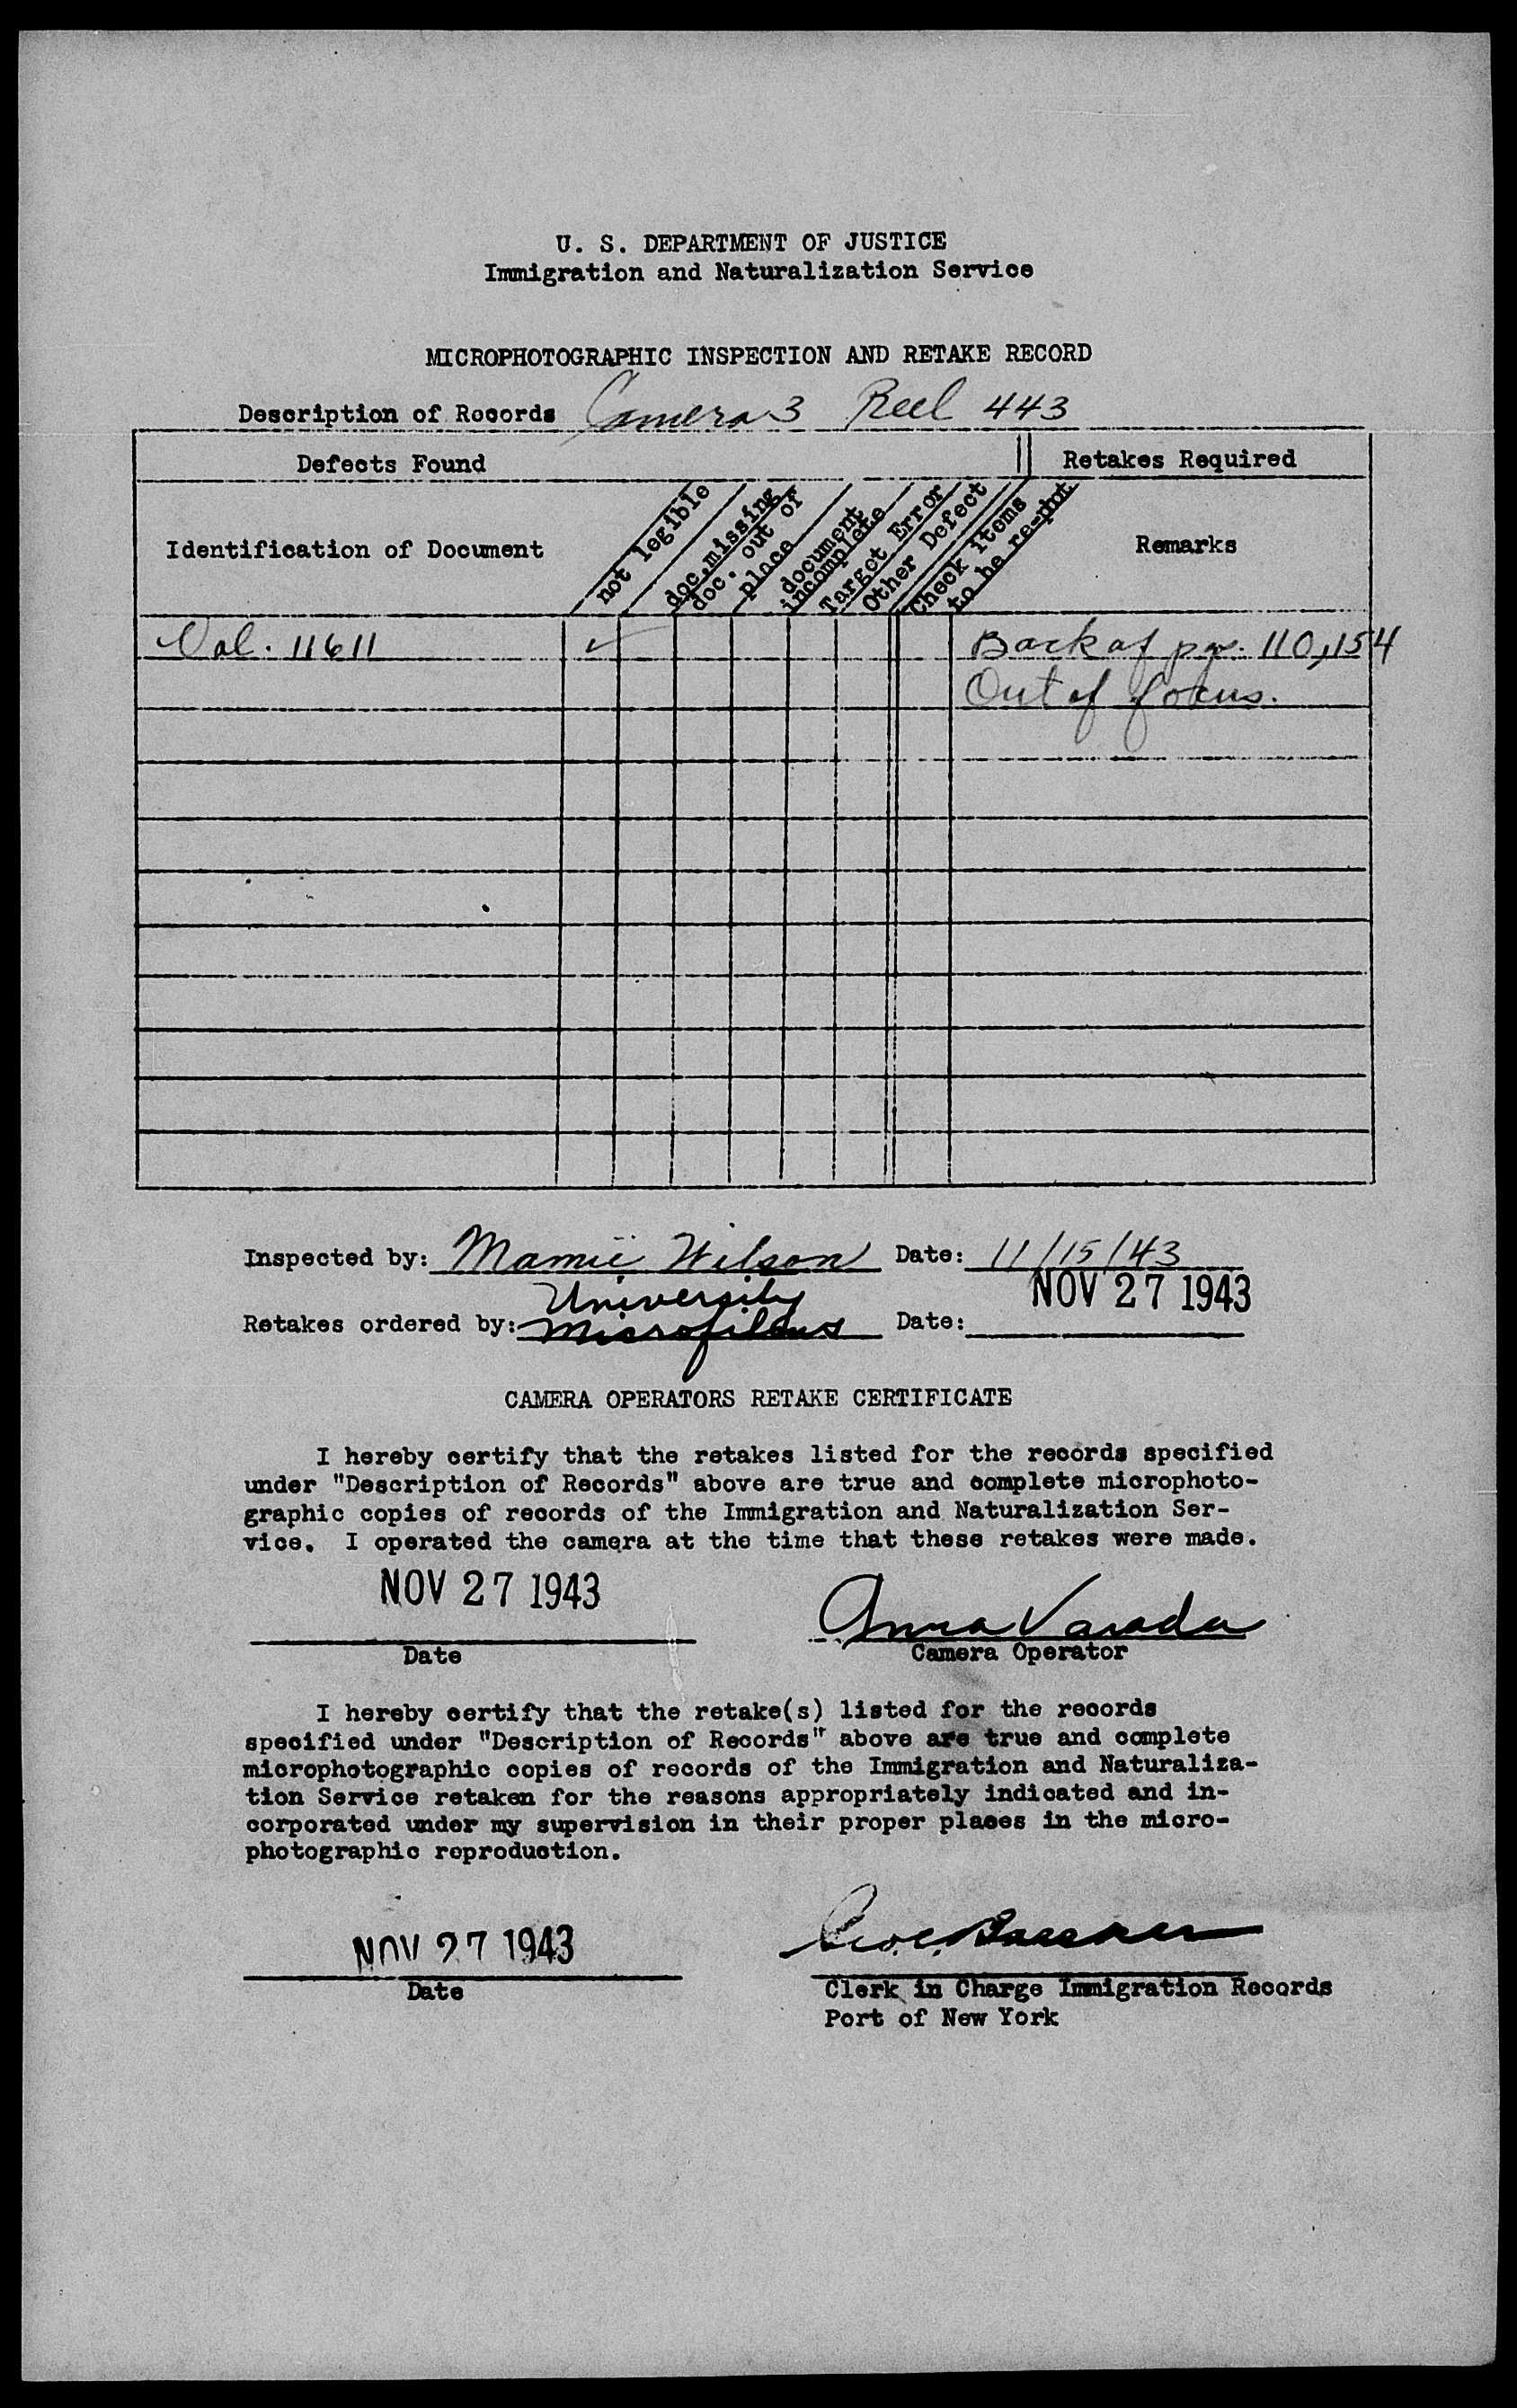 U. S. DEPARTMENT OF JUSTICE
Immigration and Naturalization Service
MICROPHOTOGRAPHIC INSPECTION AND RETAKE RECORD
Description of Records Camera 3 Reel 443
Defects Found
Retakes Required
Identification of Document
not legible
doc. missing
doc. out of
place
document
incomplete
Target Error
Other Defect
Check items
to be re-phot
Remarks
Vol. 11611 ✓ Back of pg. 110,154
Out of focus.
Inspected by: Mamie Wilson Date: 11/15/43
University NOV 27 1943
Retakes ordered by: Microfilms Date:
CAMERA OPERATORS RETAKE CERTIFICATE
I hereby certify that the retakes listed for the records specified
under "Description of Records" above are true and complete microphoto-
graphic copies of records of the Immigration and Naturalization Ser-
vice. I operated the camera at the time that these retakes were made.
NOV 27 1943
Anna Varada
Date
Camera Operator
I hereby certify that the retake(s) listed for the records
specified under "Description of Records" above are true and complete
microphotographic copies of records of the Immigration and Naturaliza-
tion Service retaken for the reasons appropriately indicated and in-
corporated under my supervision in their proper places in the micro-
photographic reproduction.
NOV 27 1943
Date
Clerk in Charge Immigration Records
Port of New York